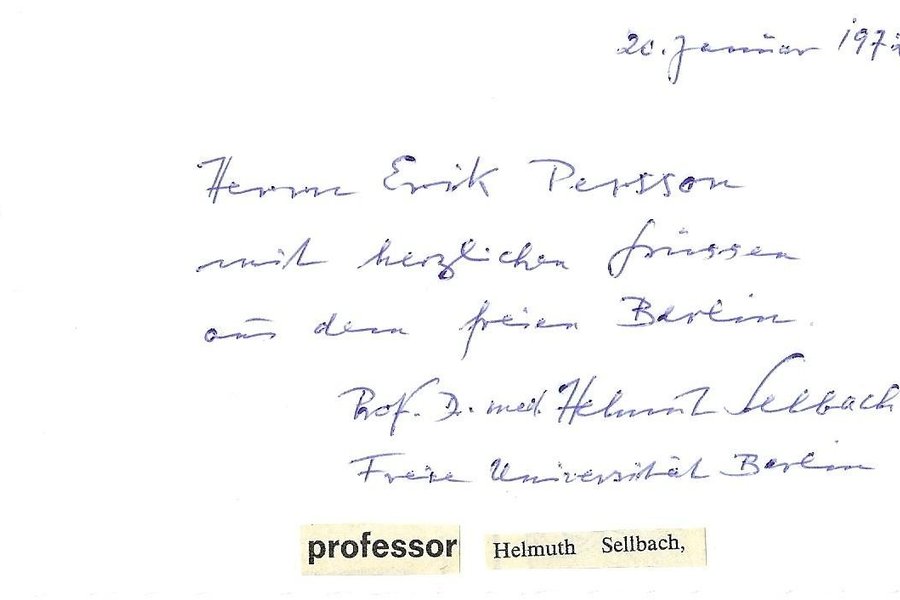 20. Januar 1972
Herrn Erik Persson
mit herzlichen Grüssen
aus dem freien Berlin.
Prof. Dr. med. Helmut Selbach
Freie Universität Berlin
professor Helmuth Sellbach,